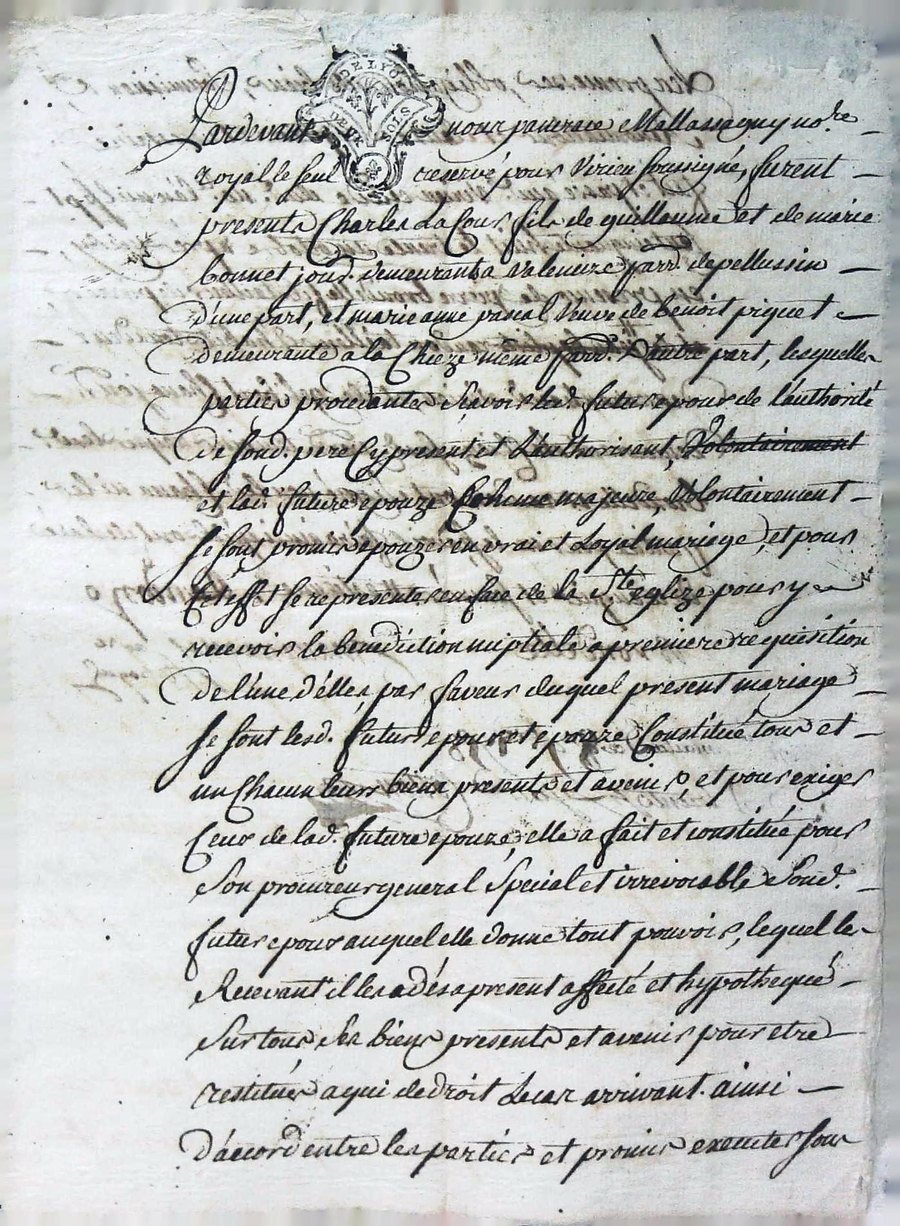 DE LYON
DEUX SOLS
Pardevant nous pancrace Mallassagny no.re
royal le seul reservé pour Virieu soussigné, furent
presents Charles La Cour fils de guillaume et de marie
bonnet jour.d demeurant a valencize parr. de pellussin
D'une part, et marie anne pascal veuve de benoit piquet
demeurante a la Chieze même parr. D'autre part, lesquelles
parties procedantes sçavoir led. futur epour de l'authorité
de sond. pere Cy present et L'authorisant, Volontairement
et lad. future epouze Comme majeure, Volontairement
se sont promis epouzer en vrai et Loyal mariage, et pour
Cet effet se representer en face de la S.te eglize pour y
recevoir la benediction nuptiale a premiere requisition
de l'une d'elles, par faveur duquel present mariage
se sont lesd. futurs epour et epouze Constitué tous et
un Chacun leurs biens presents et avenir, et pour exiger
Ceux de lad. future epouze, elle a fait et constitué pour
son procureur general special et irrevocable sond.
futur epour auquel elle donne tout pouvoir, lequel les
Recevant il les a dés apresent affecté et hypothequé
sur tous ses biens presents et avenir pour etre
restitués a qui de droit Le cas arrivant. ainsi
D'accord entre les parties et promis executer sous